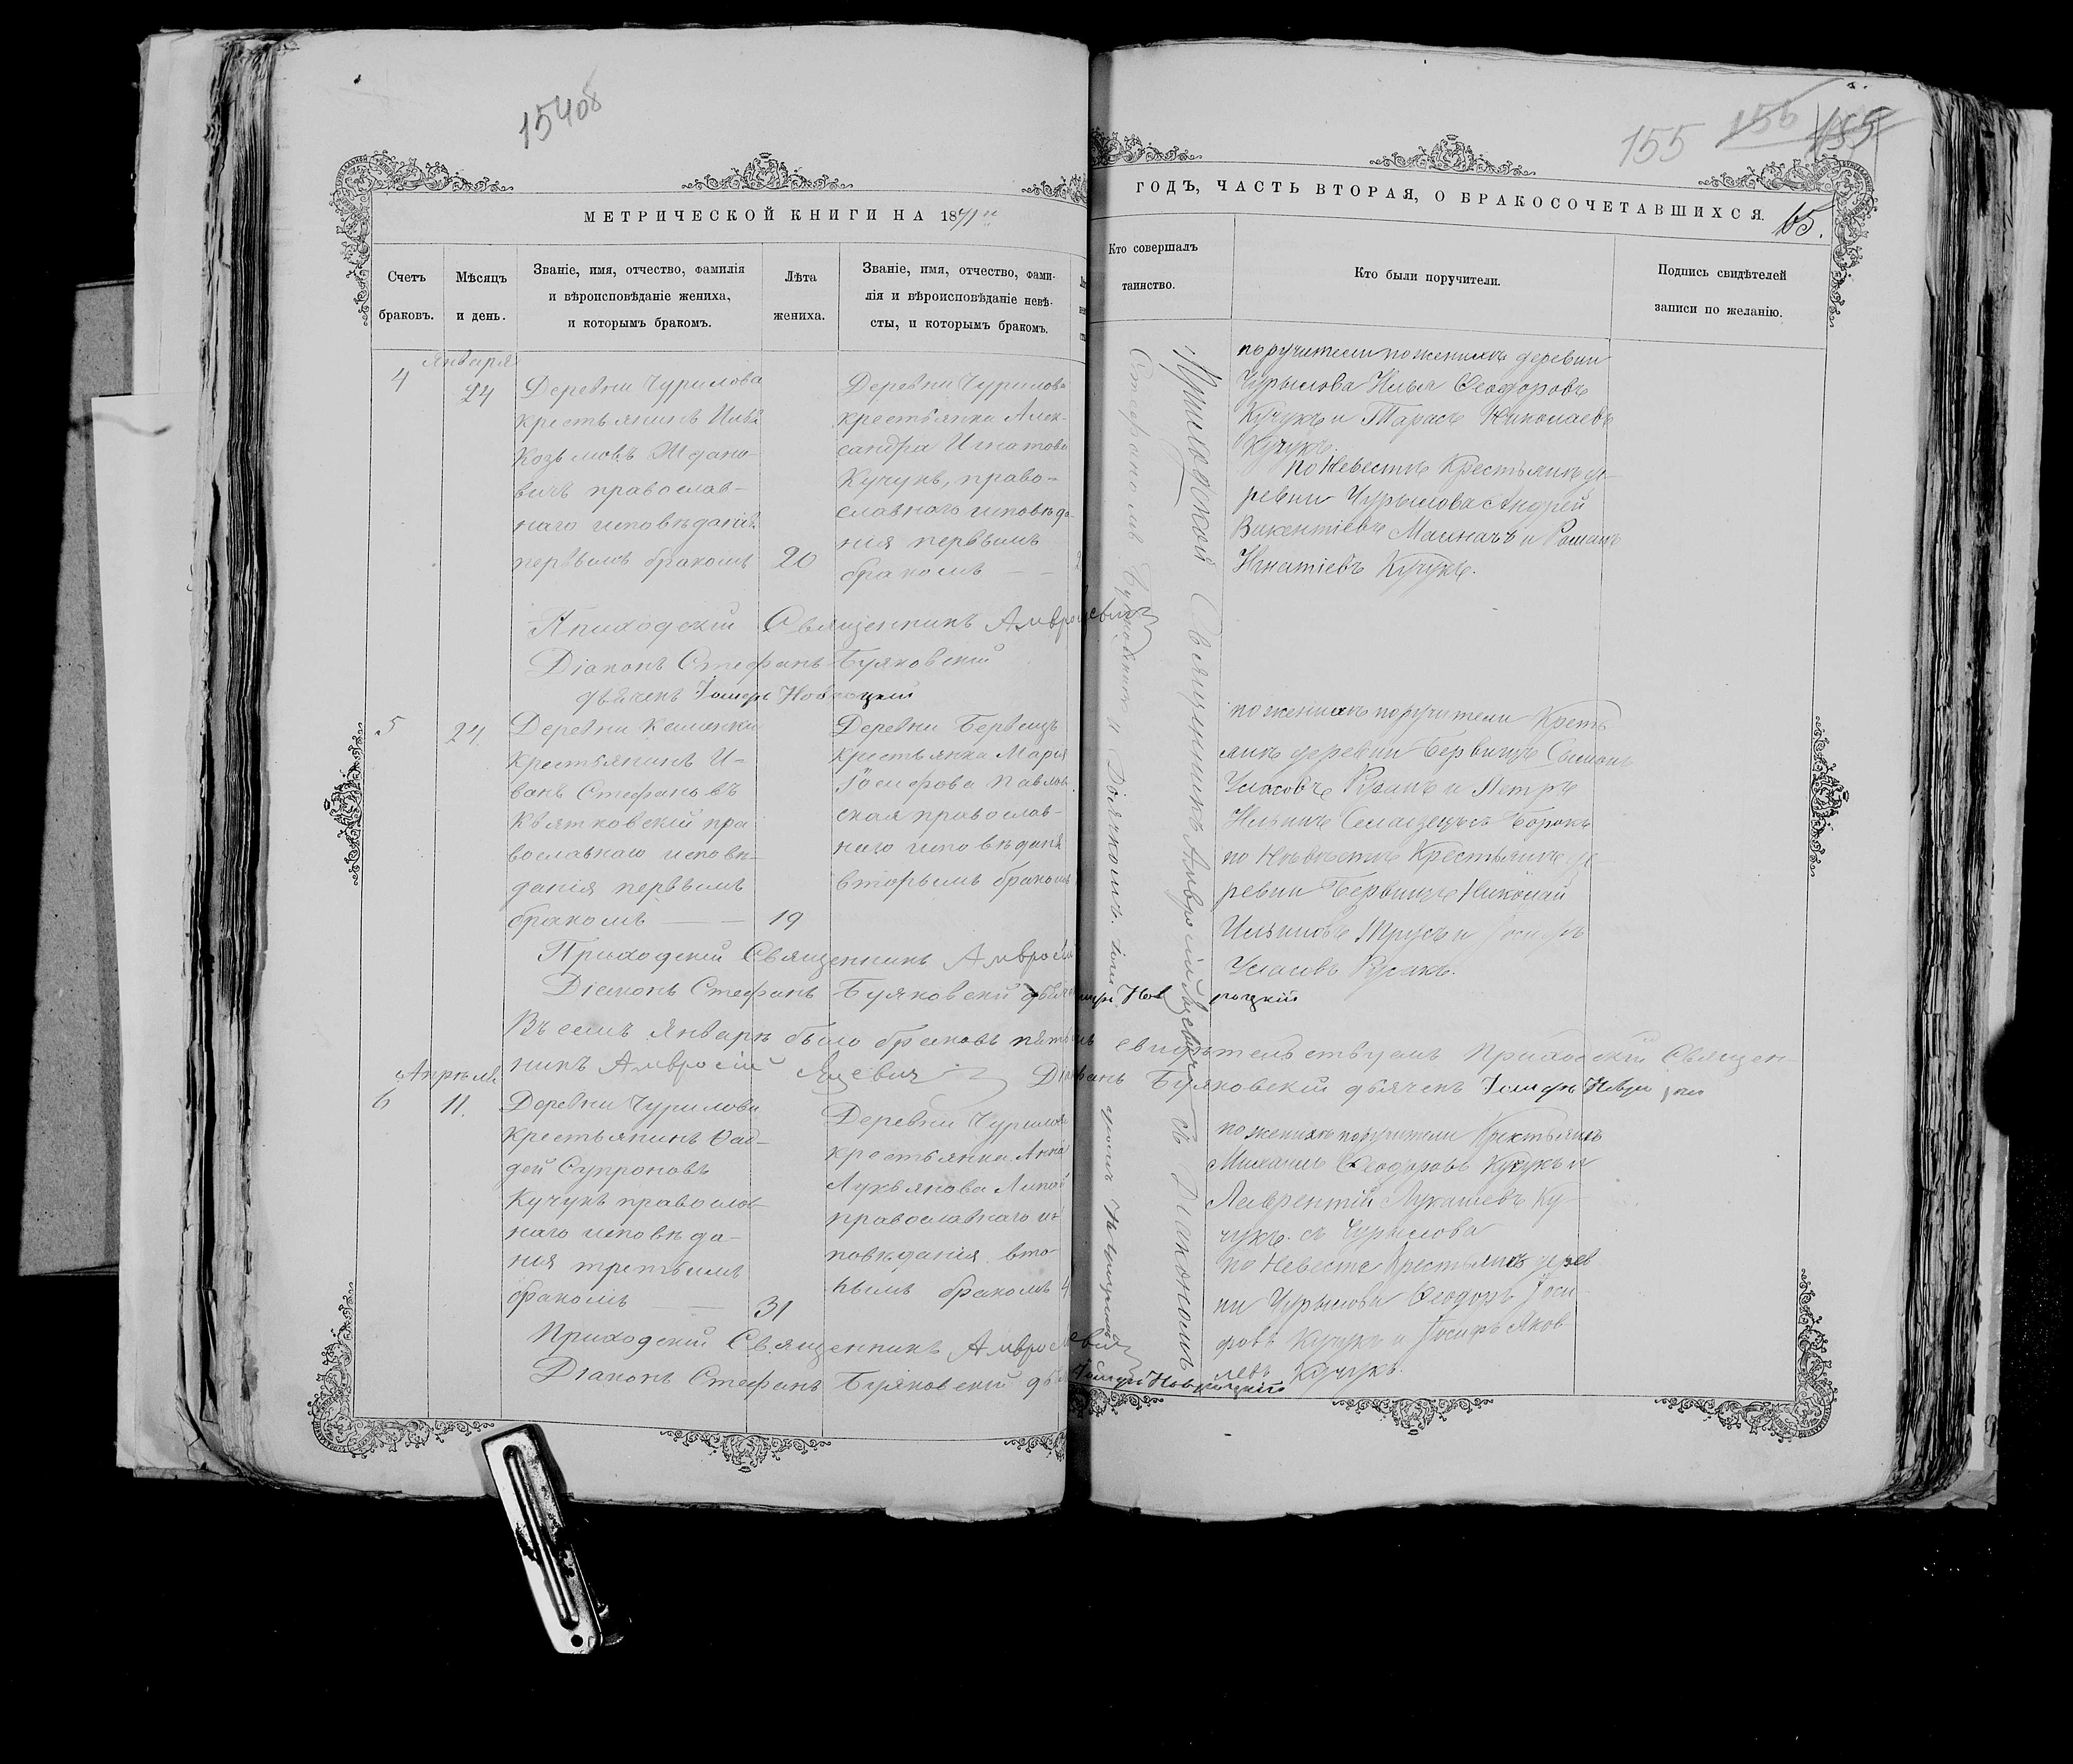 15408
155 156 155
МЕТРИЧЕСКОЙ КНИГИ НА 1871й
ГОДЪ, ЧАСТЬ ВТОРАЯ, О БРАКОСОЧЕТАВШИХСЯ.
65.
Счетъ браковъ.
Мѣсяцъ и день.
Званіе, имя, отчество, фамилія
и вѣроисповѣданіе жениха,
и которымъ бракомъ.
Лѣта жениха.
Званіе, имя, отчество, фами-
лія и вѣроисповѣданіе невѣ-
сты, и которымъ бракомъ.
Кто совершалъ
таинство.
Кто были поручители.
Подпись свидѣтелей
записи по желанію.
Января
4
24
Деревни Чурилова
крестьянинъ Илья
Козьмовъ Ждано-
вичъ православ-
наго исповѣданія
первымъ бракомъ
20
Деревни Чурилова
крестьянка Алек-
сандра Игнатова
Кучукъ, право-
славнаго исповѣда-
нія первымъ
бракомъ
поручители по женихѣ деревни
Чурылова Илья Ѳеодоровъ
Кучукъ и Тарасъ Николаевъ
Кучукъ.
по Невестѣ Крестьянинъ де-
ревни Чурылова Андрей
Викентіевъ и Романъ
Игнатіевъ Кучукъ.
Приходскій Священникъ Амвросій
Діаконъ Стефанъ Буяковскій
дьячекъ Іосифъ Новроцкій
5
24
Деревни
крестьянинъ И-
ванъ Стефановъ
Квятковскій пра-
вославнаго исповѣ-
данія первымъ
бракомъ
19
Деревни Бервищъ
крестьянка Марія
Іосифова Павлов-
ская православ-
наго исповѣданія
вторымъ бракомъ
по женихѣ поручители Кресть-
янинъ деревни Бервищъ
и Петръ
по Невѣстѣ Крестьянинъ де-
ревни Бервищъ Николай
Ильинъ Трусъ и Іосифъ
Русакъ.
Приходскій Священникъ Амвросій
Діаконъ Стефанъ Буяковскій дьячекъ Іосифъ Новроцкій
Въ семъ Январѣ было браковъ пять свидѣтельствуемъ Приходскій Священ-
никъ Амвросій Яцевичъ Буяковскій дьячекъ Іосифъ
Апрѣля
6
11.
Деревни Чурилова
крестьянинъ Ѳад-
дей Супроновъ
Кучукъ православ-
наго исповѣда-
нія третьимъ
бракомъ
31
Деревни Чурилова
крестьянка Анна
Лукьянова
православнаго ис-
повѣданія вто-
рымъ бракомъ
по женихѣ поручители Крестьянинъ
Михаилъ Ѳеодоровъ Кучукъ и
Лаврентій Лукашевъ Ку-
чукъ. съ Чурылова
по Невестѣ Крестьянинъ дерев
ни Чурылова Ѳеодоръ Іоси-
фовъ Кучукъ и Іосифъ Яков-
левъ Кучукъ.
Приходскій Священникъ Амвросій
Діаконъ Стефанъ Буяковскій Іосифъ Новроцкій
Приходской Священникъ Амвросій Яцевичъ съ Діакономъ
Стефаномъ Буяковскимъ и Дьячкомъ